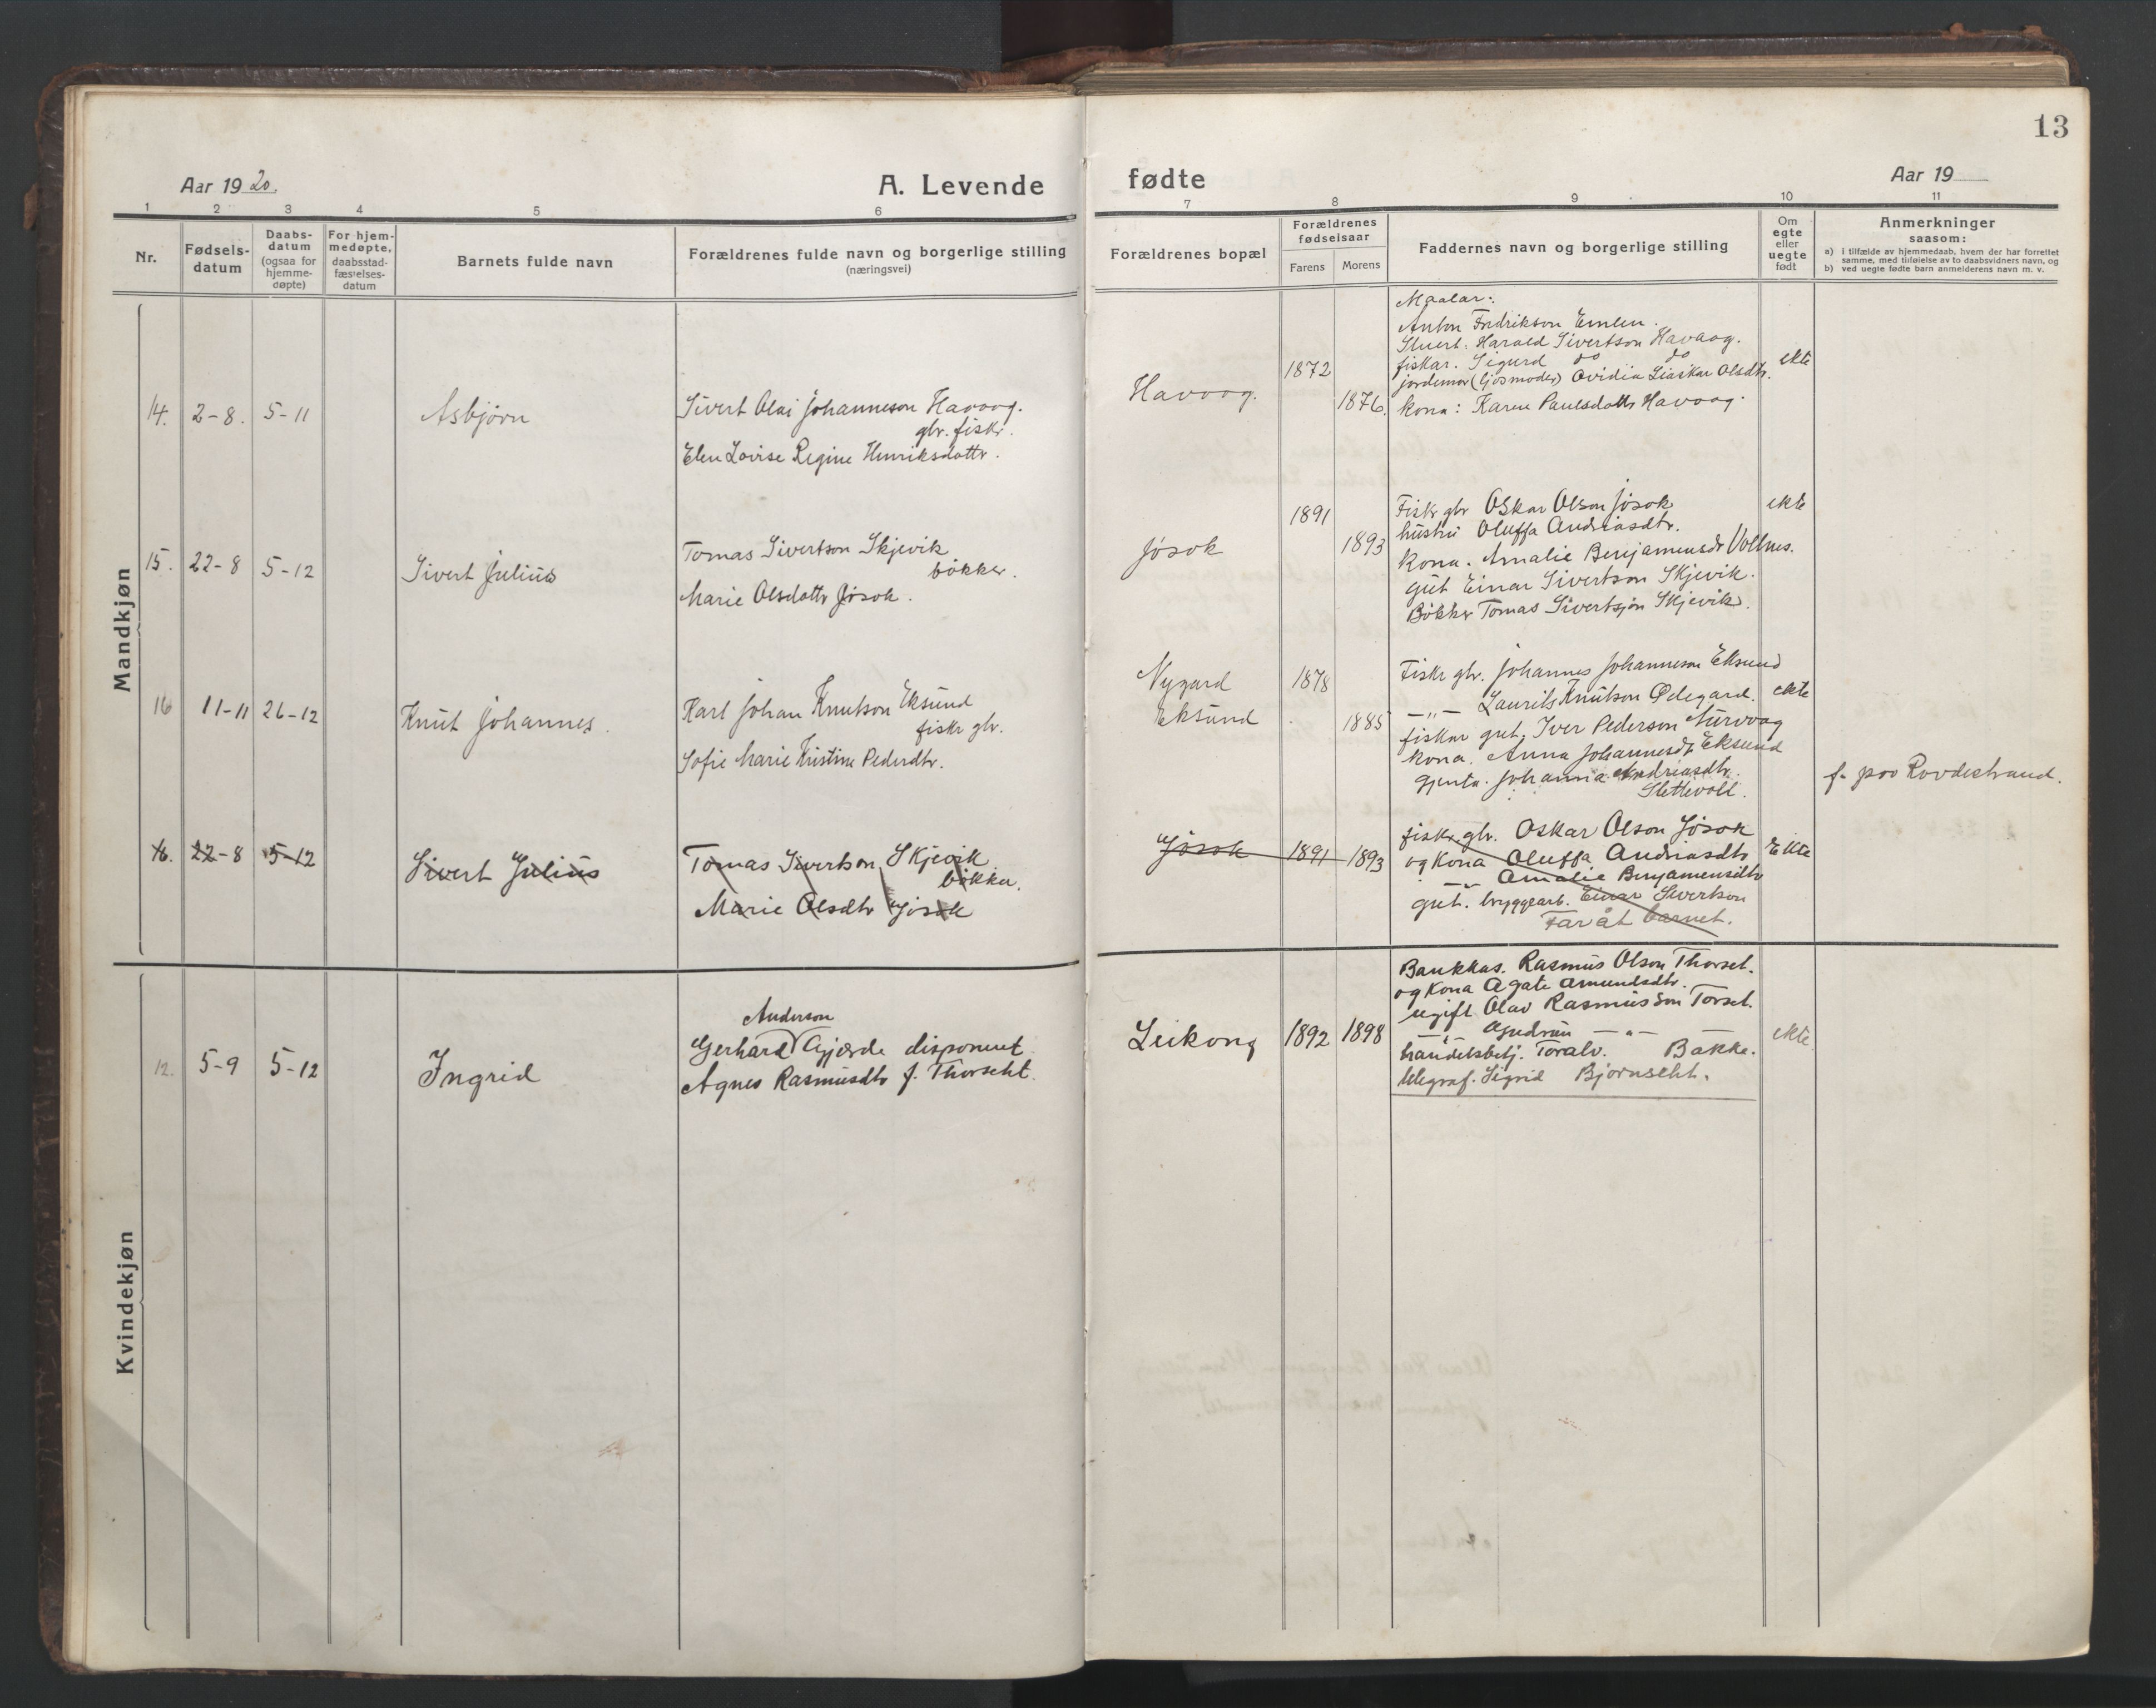 13
Aar 1920.
A. Levende fødte
Aar 19
1 2 3 4 5 6 7 8 9 10 11
Nr.
Fødsels-
datum
Daabs-
datum
(ogsaa for
hjemme-
døpte)
For hjem-
medøpte,
daabsstad-
fæstelses-
datum
Barnets fulde navn
Forældrenes fulde navn og borgerlige stilling
(næringsvei)
Forældrenes bopæl
Forældrenes
fødselsaar
Farens
Morens
Faddernes navn og borgerlige stilling
Om
egte
eller
uegte
født
Anmerkninger
saasom:
a) i tilfælde av hjemmedaab, hvem der har forrettet
samme, med tilføielse av to daabsvidners navn, og
b) ved uegte fødte barn anmelderens navn m. v.
Mandkjøn
14. 2-8. 5-11
Asbjørn
Sivert Olai Johanneson Havaag.
gbr. fiskr.
Elen Lovise Regine Henriksdottr.
Havaag.
1872
1876.
Maalar:
Anton Fredrikson Emlem.
Stuert: Harald Sivertson Havaag.
fiskar. Sigurd do do
jordemor (ljosmoder) Ovidia Liaskar Olsdtr.
kona: Karen Paulsdottr Havaag.
ekte
15. 22-8 5-12
Sivert Julius
Tomas Sivertson Skjevik
bøkker.
Marie Olsdottr Jøsok.
Jøsok
1891
1893
Fiskr gbr Oskar Olson Jøsok
hustru Oluffa Andriasdtr.
Kona. Amalie Benjamensdr Vollnes.
gut Einar Sivertson Skjevik.
Bøkker Tomas Sivertsjøn Skjevik.
ekte
16 11-11 26-12
Knut Johannes.
Karl Johan Knutson Eksund
fiskr gbr.
Sofie Marie Kristine Pedersdtr.
Nygard
Eksund
1878
1885
Fiskr gbr. Johannes Johanneson Eksund
—"— Laurits Knutson Ødegard.
fiskar gut. Iver Pederson Nurvaag
kona. Anna Johannesdtr Eksund
gjenta. Johanna Andriasdtr.
Slettevoll.
ekte
f. paa Rovdestrand.
16. 22-8 5-12
Sivert Julius
Tomas Sivertson Skjevik
bøkker.
Marie Olsdtr Jøsok
Jøsok 1891 1893
fiskr. gbr. Oskar Olson Jøsok
og Kona Oluffa Andriasdtr
—"— Amalie Benjamensdtr
gut. bryggearb. Einar Sivertson
Far åt barnet.
Ekte
Kvindekjøn
12. 5-9 5-12
Ingrid
Anderson
Gerhard Gjærde disponent
Agnes Rasmusdtr f. Thorseht.
Leikong 1892 1898
Bankkas. Rasmus Olson Thorset.
og Kona Agate Amundsdtr.
ugift Olav Rasmusson Torset.
—"— Gudrun —"— —
handelsbetj. Toralv. Bakke.
telegraf. Sigrid Bjørnseht.
ekte.